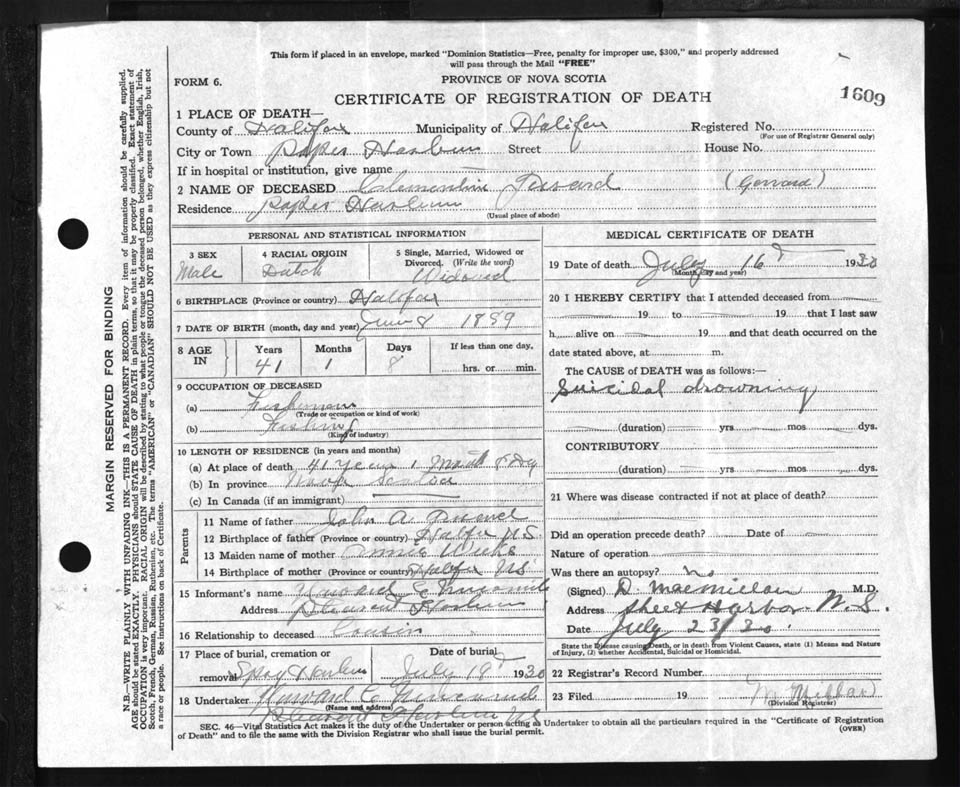 This form if placed in an envelope, marked "Dominion Statistics—Free, penalty for improper use, $300," and properly addressed
will pass through the Mail "FREE"
FORM 6.
PROVINCE OF NOVA SCOTIA
CERTIFICATE OF REGISTRATION OF DEATH
1609
1 PLACE OF DEATH—
County of Halifax Municipality of Halifax Registered No.
(For use of Registrar General only)
City or Town Popes Harbour Street House No.
If in hospital or institution, give name
2 NAME OF DECEASED Clementine (Gerrard)
Residence Popes Harbour
(Usual place of abode)
PERSONAL AND STATISTICAL INFORMATION
3 SEX 4 RACIAL ORIGIN 5 Single, Married, Widowed or
Divorced. (Write the word)
Male Dutch Widowed
6 BIRTHPLACE (Province or country) Halifax
7 DATE OF BIRTH (month, day and year) June 8 1889
8 AGE IN Years Months Days If less than one day,
41 1 8 hrs. or min.
9 OCCUPATION OF DECEASED
(a) Fisherman
(Trade or occupation or kind of work)
(b) Fishing
(Kind of industry)
10 LENGTH OF RESIDENCE (in years and months)
(a) At place of death 41 years 1 Month 8 Dy
(b) In province Nova Scotia
(c) In Canada (if an immigrant)
Parents
11 Name of father John A.
12 Birthplace of father (Province or country) Halifax N.S.
13 Maiden name of mother Annie Weeks
14 Birthplace of mother (Province or country) Halifax NS.
15 Informant's name
Address Harbour
16 Relationship to deceased Cousin
17 Place of burial, cremation or Date of burial
removal Spry Harbour July 18 1930
18 Undertaker
(Name and address)
Harbour NS
MEDICAL CERTIFICATE OF DEATH
19 Date of death July 16 1930
(Month, day and year)
20 I HEREBY CERTIFY that I attended deceased from
19 to 19 that I last saw
h alive on 19 and that death occurred on the
date stated above, at m.
The CAUSE OF DEATH was as follows:—
Suicidal drowning
(duration) yrs mos. dys.
CONTRIBUTORY
(duration) yrs. mos. dys.
21 Where was disease contracted if not at place of death?
Did an operation precede death? Date of
Nature of operation
Was there an autopsy? no
(Signed) D. MacMillan M.D.
Address Sheet Harbor N.S.
Date July 23/30
State the Disease causing Death, or in death from Violent Causes, state (1) Means and Nature
of Injury, (2) whether Accidental, Suicidal or Homicidal.
22 Registrar's Record Number
23 Filed 19
(Division Registrar)
SEC. 46—Vital Statistics Act makes it the duty of the Undertaker or person acting as Undertaker to obtain all the particulars required in the "Certificate of Registration
of Death" and to file the same with the Division Registrar who shall issue the burial permit.
(OVER)
MARGIN RESERVED FOR BINDING
N.B.—WRITE PLAINLY WITH UNFADING INK—THIS IS A PERMANENT RECORD. Every item of information should be carefully supplied.
AGE should be stated EXACTLY. PHYSICIANS should STATE CAUSE OF DEATH in plain terms, so that it may be properly classified. Exact statement of
OCCUPATION is very important. RACIAL ORIGIN will be described by stating to what people or tongue the deceased person belonged, whether English, Irish,
Scotch, French, German, Russian, Ruthenian, etc. The terms "AMERICAN" or "CANADIAN" SHOULD NOT BE USED as they express citizenship but not
a race or people. See instructions on back of Certificate.